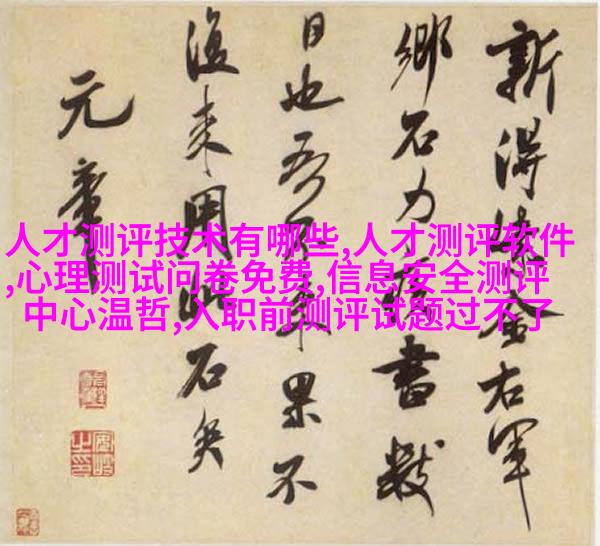 新得紫金右軍
鄉石力疾書數
日也吾不來果不
復來用此石矣
元章
人才测评技术有哪些,人才测评软件
,心理测试问卷免费,信息安全测评
中心温哲,入职前测评试题过不了